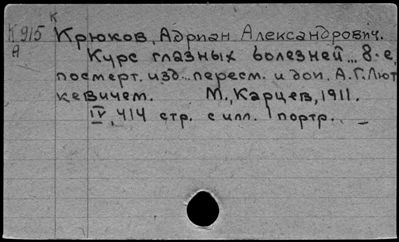 К
К 915 Крюков, Адриан Александрович.
А
Курс глазных болезней... 8-е,
посмерт. изд. пересм. и доп. А.Г. Лют
кевичем. М., Карцев, 1911.
IV, 414 стр. с илл. портр.